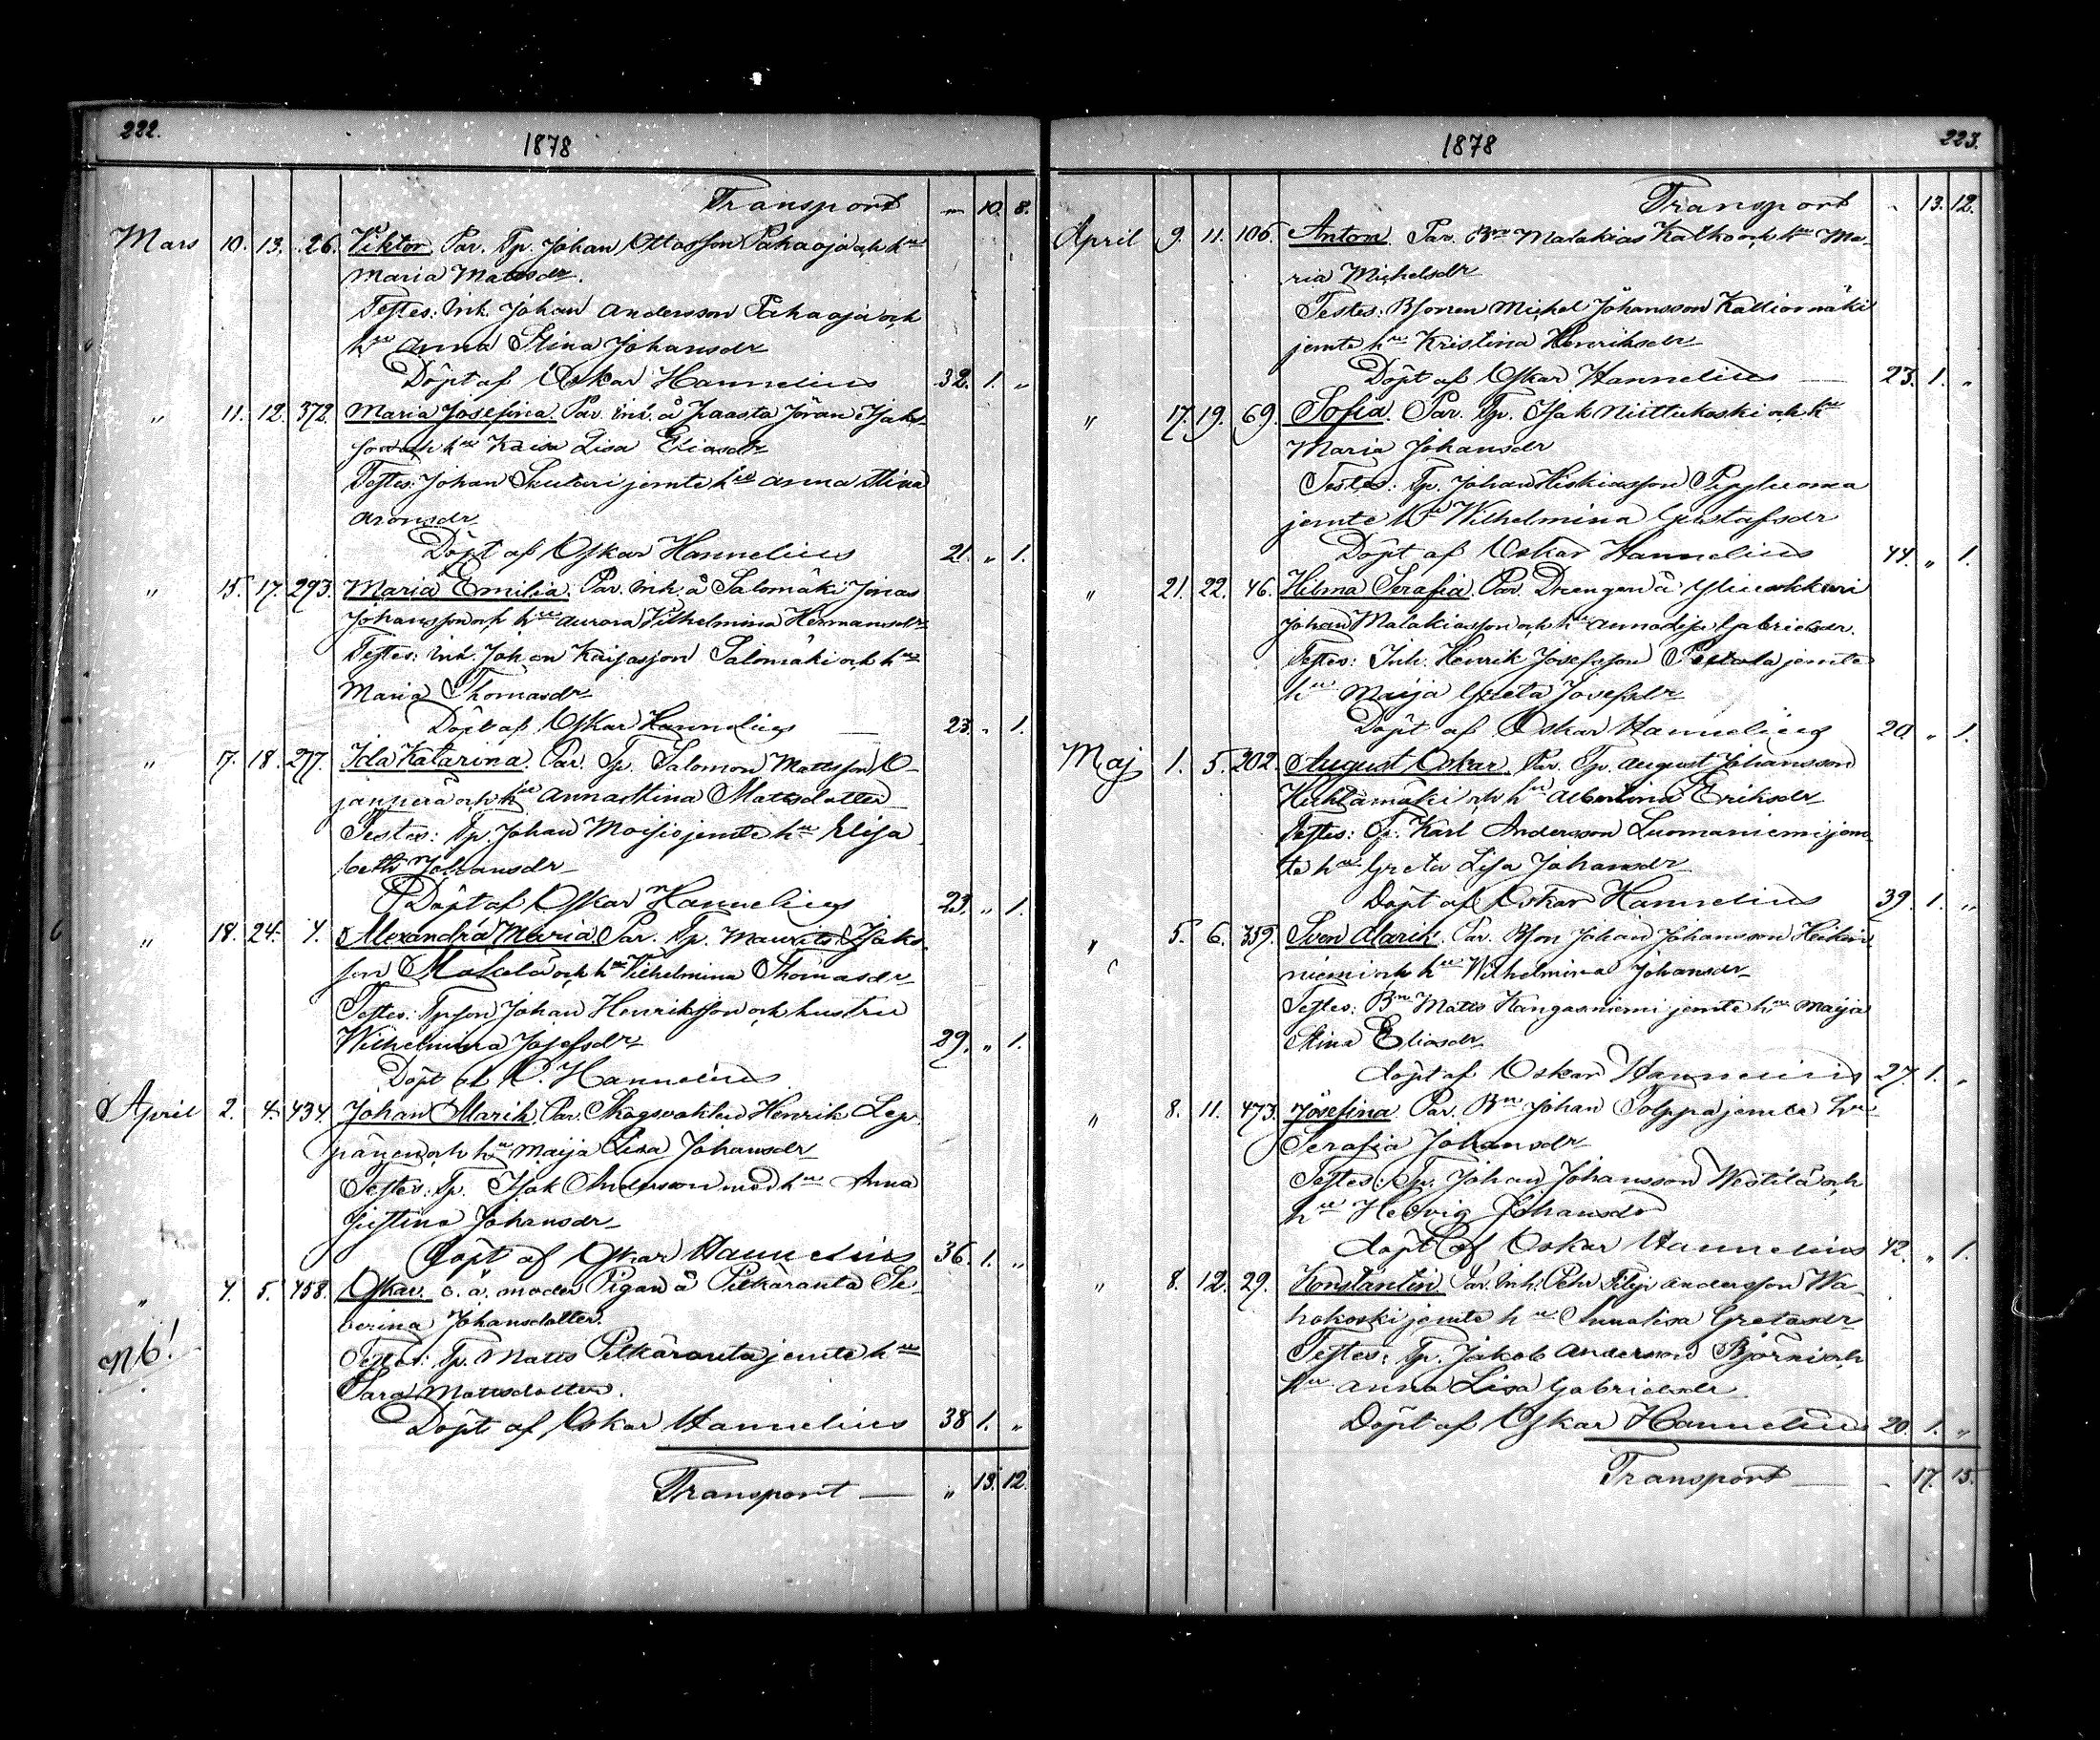 222.
1878
Transport — 10. 8.
Mars 10. 13. 26. Viktor. Par. Tp. Johan Ottosson Pahaoja och hu
Maria Mattsdr.
Testes: Inh. Johan Andersson Pahaoja och
hu Anna Stina Johansdr
Döpt af Oskar Hannelius 32. 1. „
„ 11. 12. 372. Maria Josefina. Par. Inh. å Haasta Jöran Isaks-
son och hu Kaisa Lisa Eliasdr
Testes: Johan Skutari jemte hu Anna Stina
Aronsdr
Döpt af Oskar Hannelius 21. „ 1.
„ 15. 17. 293. Maria Emilia. Par. Inh. å Salomäki Jonas
Johansson och hu Aurora Vilhelmina Hermansdr
Testes: Inh. Johan Kaijasson Salomäki och hu
Maria Thomasdr
Döpt af Oskar Hannelius — 23. „ 1.
„ 17. 18. 277. Ida Katarina. Par. Tp. Salomon Mattsson O-
janperä och hu Anna Stina Mattsdotter
Testes: Tp. Johan Moisio jemte hu Elisa
beth Johansdr
Döpt af Oskar Hannelius 23. „ 1.
„ 18. 24. 4. Alexandra Maria. Par. Tp. Maurits Isaks
son Mäkelä och hu Vilhelmina Thomasdr
Testes: Tpson Johan Henriksson och hustru
Wilhelmina Josefsdr 29. „ 1.
Döpt af O. Hannelius
April 2. 4. 434. Johan Alarik. Par. Skogsvaktar Henrik Lep
pänen och hu Maija Lisa Johansdr
Testes: Tp. Isak Andersson med hu Anna
Justina Johansdr
Döpt af Oskar Hannelius 36. 1. „
„ 4. 5. 458. Oskar. o. ä. moder Pigan å Pitkäranta Se-
verina Johansdotter.
NB! Testes: Tp. Matts Pitkäranta jemte hu
Sara Mattsdotter.
Döpt af Oskar Hannelius 38 1. „
Transport — „ 13. 12.
1878
223.
Transport - 13. 12.
April 9. 11. 106. Anton. Par. Bn Malakias Katko och hu Ma-
ria Michelsdr
Testes: Bsonen Michel Johansson Kalliomäki
jemte hu Kristina Henriksdr
Döpt af Oskar Hannelius — 23. 1. „
„ 17. 19. 69. Sofia. Par. Tp. Isak Niittukoski och hu
Maria Johansdr
Testes: Tp. Johan Hiskiasson Pippuoma
jemte hu Wilhelmina Gustafsdr
Döpt af Oskar Hannelius 44. „ 1.
„ 21. 22. 46. Hilma Serafia. Par. Drengen å
Johan Malakiasson och hu Anna Lisa Gabrielsdr.
Testes: Inh. Henrik Josefsson jemte
hu Maija Greta Josefsdr
Döpt af Oskar Hannelius 20. „ 1.
Maj 1. 5. 202. August Oskar. Par. Tp. August Johansson
Huhtamäki och hu Albertina Eriksdr
Testes: Tp. Karl Andersson Luomaniemi jem
te hu Greta Lisa Johansdr
Döpt af Oskar Hannelius 39. 1. „
„ 5. 6. 359. Sven Alarik. Par. Bson Johan Johansson Heikin
niemi och hu Wilhelmina Johansdr
Testes: Bn Matts Kangasniemi jemte hu Maija
Stina Eliasdr
döpt af Oskar Hannelius 27. 1. „
„ 8. 11. 473. Josefina. Par. Bn Johan Solppa jemte hu
Serafia Johansdr
Testes: Tp. Johan Johansson Westilä och
hu Hedvig Johansdr
döpt af Oskar Hannelius 42. „ 1.
„ 8. 12. 29. Konstantin. Par. Inh. Pehr Filip Andersson Wa-
hakoski jemte hu Annalisa Gretasdr
Testes: Tp. Jakob Andersson Björni och
hu Anna Lisa Gabrielsdr
Döpt af Oskar Hannelius 20. 1. „
Transport — - 17. 15.